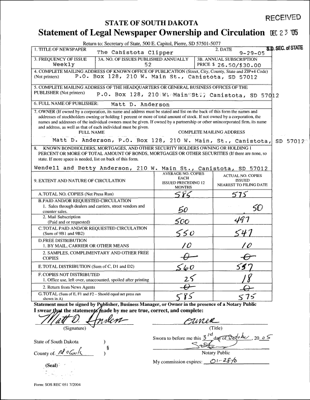 RECEIVED
DEC 23 '05
S.D. SEC. OF STATE
STATE OF SOUTH DAKOTA
Statement of Legal Newspaper Ownership and Circulation
Return to: Secretary of State, 500 E. Capitol, Pierre, SD 57501-5077
1. TITLE OF NEWSPAPER
The Canistota Clipper
2. DATE
9-29-05
3. FREQUENCY OF ISSUE
Weekly
3A. NO. OF ISSUES PUBLISHED ANNUALLY
52
3B. ANNUAL SUBSCRIPTION
PRICE $ 26.50/$30.00
4. COMPLETE MAILING ADDRESS OF KNOWN OFFICE OF PUBLICATION (Street, City, County, State and ZIP+4 Code)
(Not printers) P.O. Box 128, 210 W. Main St., Canistota, SD 57012
5. COMPLETE MAILING ADDRESS OF THE HEADQUARTERS OR GENERAL BUSINESS OFFICES OF THE
PUBLISHER (Not printers) P.O. Box 128, 210 W. Main St., Canistota, SD 57012
6. FULL NAME OF PUBLISHER:
Matt D. Anderson
7. OWNER (If owned by a corporation, its name and address must be stated and list on the back of this form the names and
addresses of stockholders owning or holding 1 percent or more of total amount of stock. If not owned by a corporation, the
names and addresses of the individual owners must be given. If owned by a partnership or other unincorporated firm, its name
and address, as well as that of each individual must be given.
FULL NAME COMPLETE MAILING ADDRESS
Matt D. Anderson, P.O. Box 128, 210 W. Main, St., Canistota, SD 57012
8. KNOWN BONDHOLDERS, MORTGAGES, AND OTHER SECURITY HOLDERS OWNING OR HOLDING 1
PERCENT OR MORE OF TOTAL AMOUNT OF BONDS, MORTGAGES OR OTHER SECURITIES (If there are none, so
state. If more space is needed, list on back of this form.
Wendell and Betty Anderson, 210 W. Main St., Canistota, SD 57012
9. EXTENT AND NATURE OF CIRCULATION
AVERAGE NO. COPIES
EACH
ISSUED PRECEDING 12
MONTHS
ACTUAL NO. COPIES
ISSUED
NEAREST TO FILING DATE
A. TOTAL NO. COPIES (Net Press Run) 585 575
B. PAID AND/OR REQUESTED CIRCULATION
1. Sales through dealers and carriers, street vendors and
counter sales. 50 50
2. Mail Subscription
(Paid and or requested) 500 497
C. TOTAL PAID AND/OR REQUESTED CIRCULATION
(Sum of 9B1 and 9B2) 550 547
D. FREE DISTRIBUTION
1. BY MAIL, CARRIER OR OTHER MEANS 10 10
2. SAMPLES, COMPLIMENTARY AND OTHER FREE
COPIES 0 0
E. TOTAL DISTRIBUTION (Sum of C, D1 and D2) 560 557
F. COPIES NOT DISTRIBUTED
1. Office use, left over, unaccounted, spoiled after printing 25 18
2. Return from News Agents 0 0
G. TOTAL (Sum of E, F1 and F2 - Should equal net press run
shown in A) 585 575
Statement must be signed by Publisher, Business Manager, or Owner in the presence of a Notary Public
I swear that the statements made by me are true, correct, and complete:
Matt D. Anderson
(Signature)
owner
(Title)
State of South Dakota )
Sworn to before me this 3rd day of October, 2005
§
County of McCook )
Notary Public
(Seal)
My commission expires:
Form: SOS REC 051 7/2004